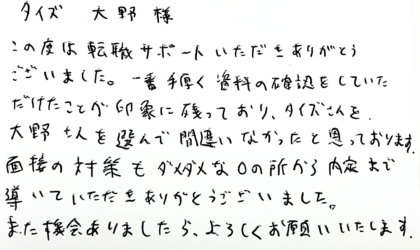 タイズ 大野 様
この度は転職サポートいただきありがとう
ございました。一番手厚く資料の確認をしていた
だけたことが印象に残っており、タイズさんを
大野さんを選んで間違いなかったと思っております。
面接の対策もダメダメな0の所から内定まで
導いていただきありがとうございました。
また機会ありましたら、よろしくお願いいたします。